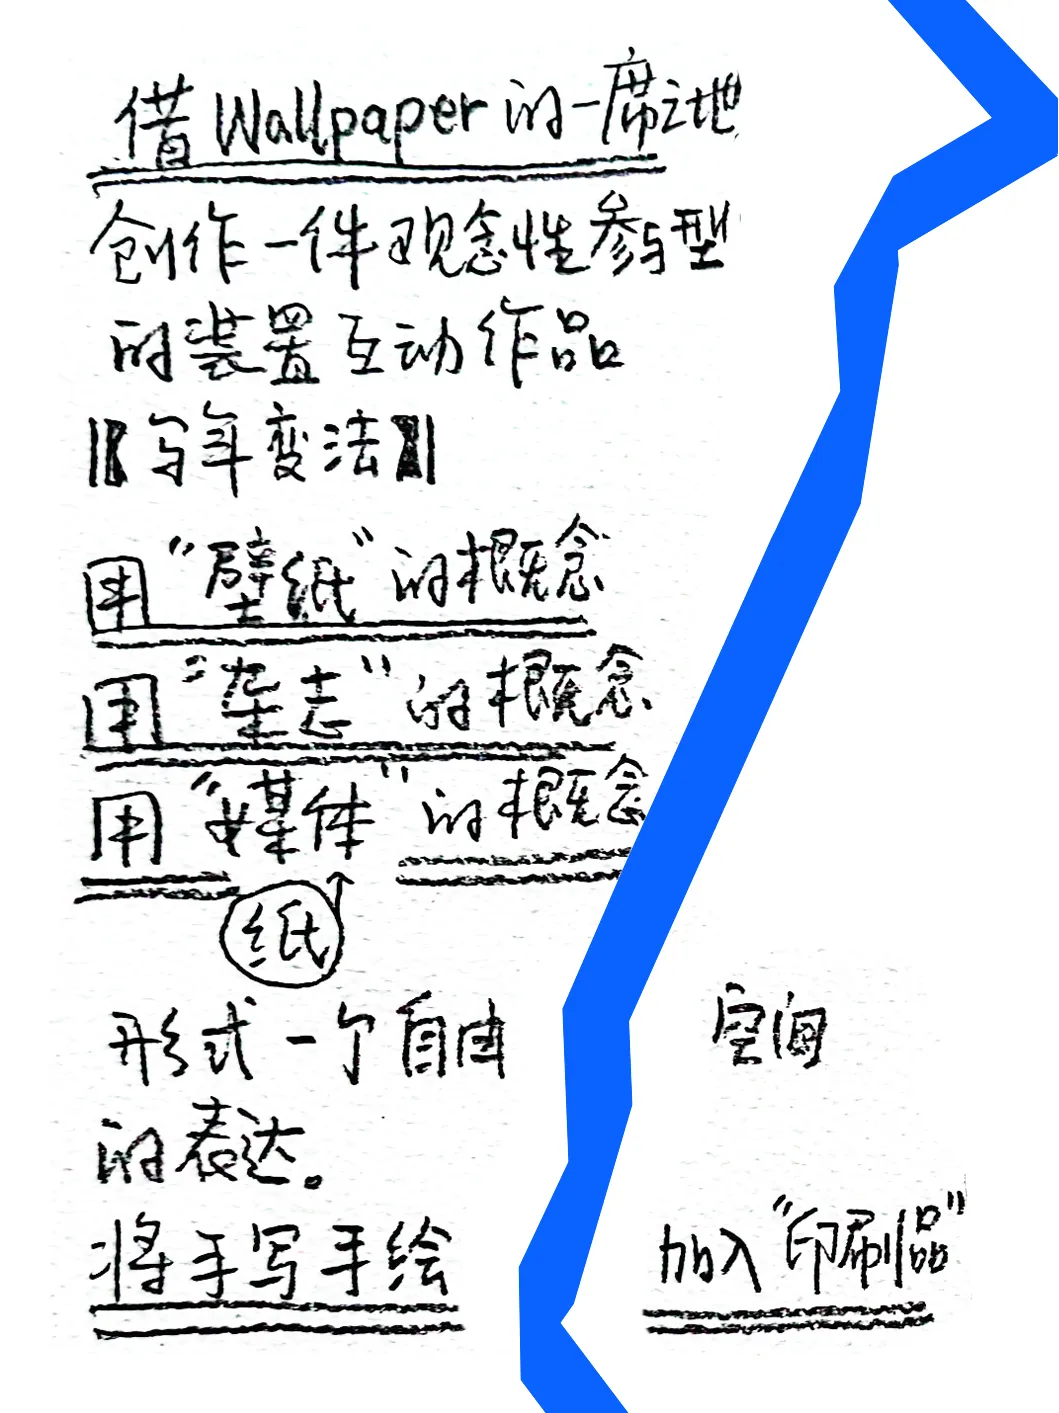 借 Wallpaper 的一席之地
创作一件观念性参与型
的装置互动作品
【与年变法】
用“壁纸”的概念
用“杂志”的概念
用“媒体”的概念
纸
形式一个自由 空间
的表达。
将手写手绘 加入“印刷品”